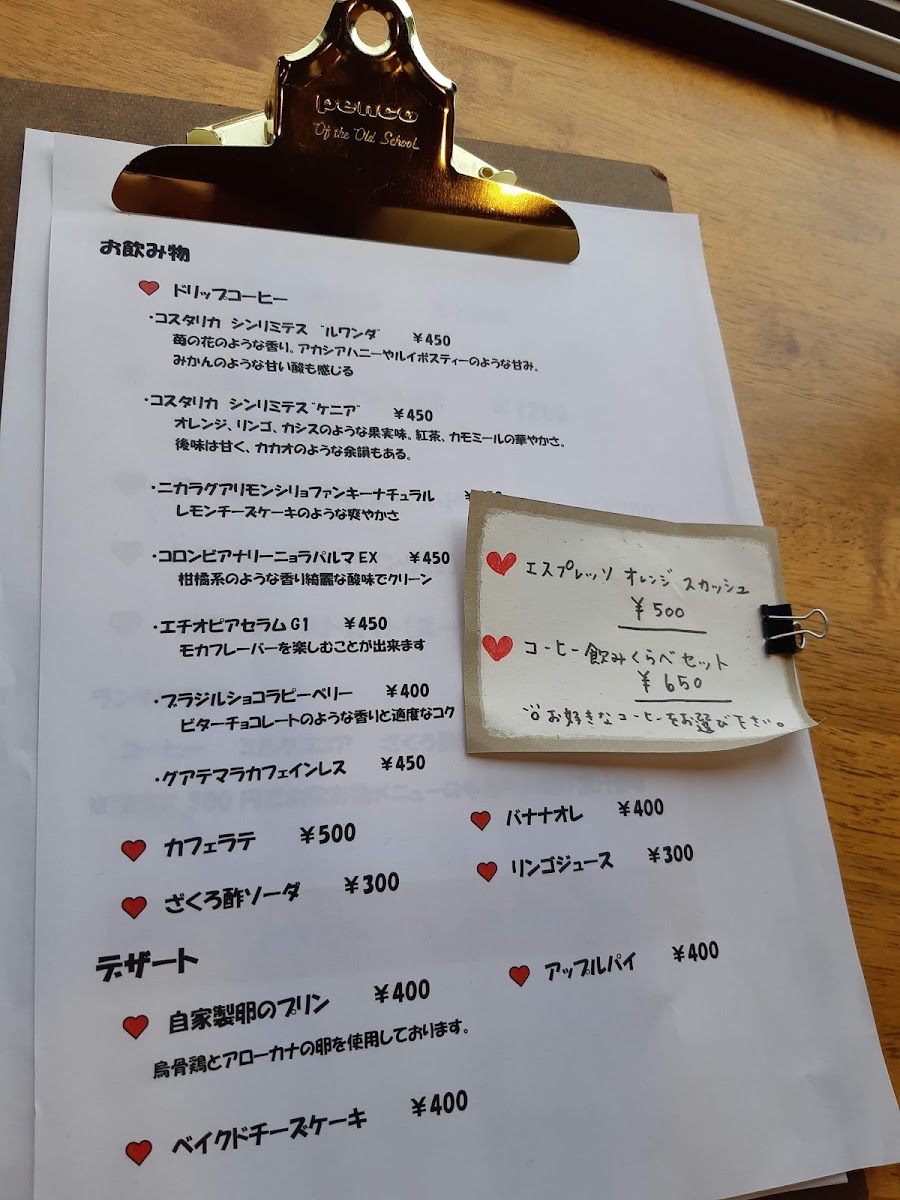 penco
Of the Old School
お飲み物
ドリップコーヒー
・コスタリカ シンリミテス "ルワンダ" ¥450
苺の花のような香り。アカシアハニーやルイボスティーのような甘み。
みかんのような甘い酸も感じる
・コスタリカ シンリミテス"ケニア" ¥450
オレンジ、リンゴ、カシスのような果実味。紅茶、カモミールの華やかさ。
後味は甘く、カカオのような余韻もある。
・ニカラグアリモンシリョファンキーナチュラル
レモンチーズケーキのような爽やかさ
・コロンビアナリーニョラパルマ EX ¥450
柑橘系のような香り綺麗な酸味でクリーン
・エチオピアセラム G1 ¥450
モカフレーバーを楽しむことが出来ます
・ブラジルショコラピーベリー ¥400
ビターチョコレートのような香りと適度なコク
・グアテマラカフェインレス ¥450
エスプレッソ オレンジ スカッシュ
¥500
コーヒー飲みくらべセット
¥650
お好きなコーヒーをお選び下さい。
カフェラテ ¥500
バナナオレ ¥400
ざくろ酢ソーダ ¥300
リンゴジュース ¥300
デザート
自家製卵のプリン ¥400
アップルパイ ¥400
烏骨鶏とアローカナの卵を使用しております。
ベイクドチーズケーキ ¥400